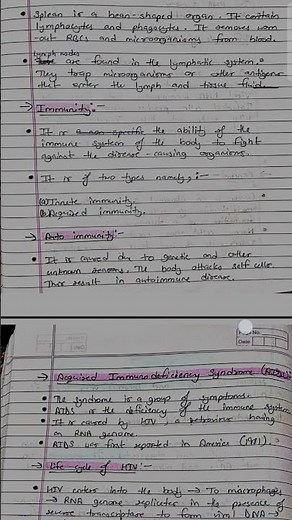 • Spleen is a bean-shaped organ. It contain
lymphocytes and phagocytes. It removes worn
-out RBCs and microorganisms from blood.
Lymph nodes
• are found in the lymphatic system.
They trap microorganisms or other antigens
that enter the lymph and tissue fluid.
→ Immunity:-
• It is the ability of the
immune system of the body to fight
against the disease-causing organisms.
• It is of two types namely;:-
(a) Innate immunity.
(b) Acquired immunity.
→ Auto immunity:-
• It is caused due to genetic and other
unknown reasons. The body attacks self cells.
This result in autoimmune disease.
Page No.
Date
→ Acquired Immuno deficiency Syndrome (AIDS):-
• The syndrome is a group of symptoms.
• AIDS is the deficiency of the immune system
• It is caused by HIV, a retrovirus having
an RNA genome.
• AIDS was first reported in America (1981).
→ Life cycle of HIV:-
• HIV enters into the body → To macrophages
→ RNA genome replicates in the presence of
reverse transcriptase to form viral DNA →